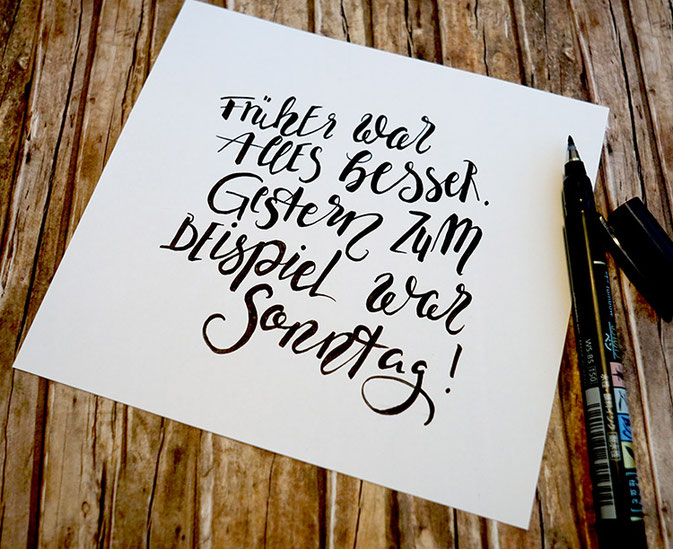 FRühEr war
AllES besseR.
GEstern zum
BEispiel war
Sonntag!
WS-BS 150